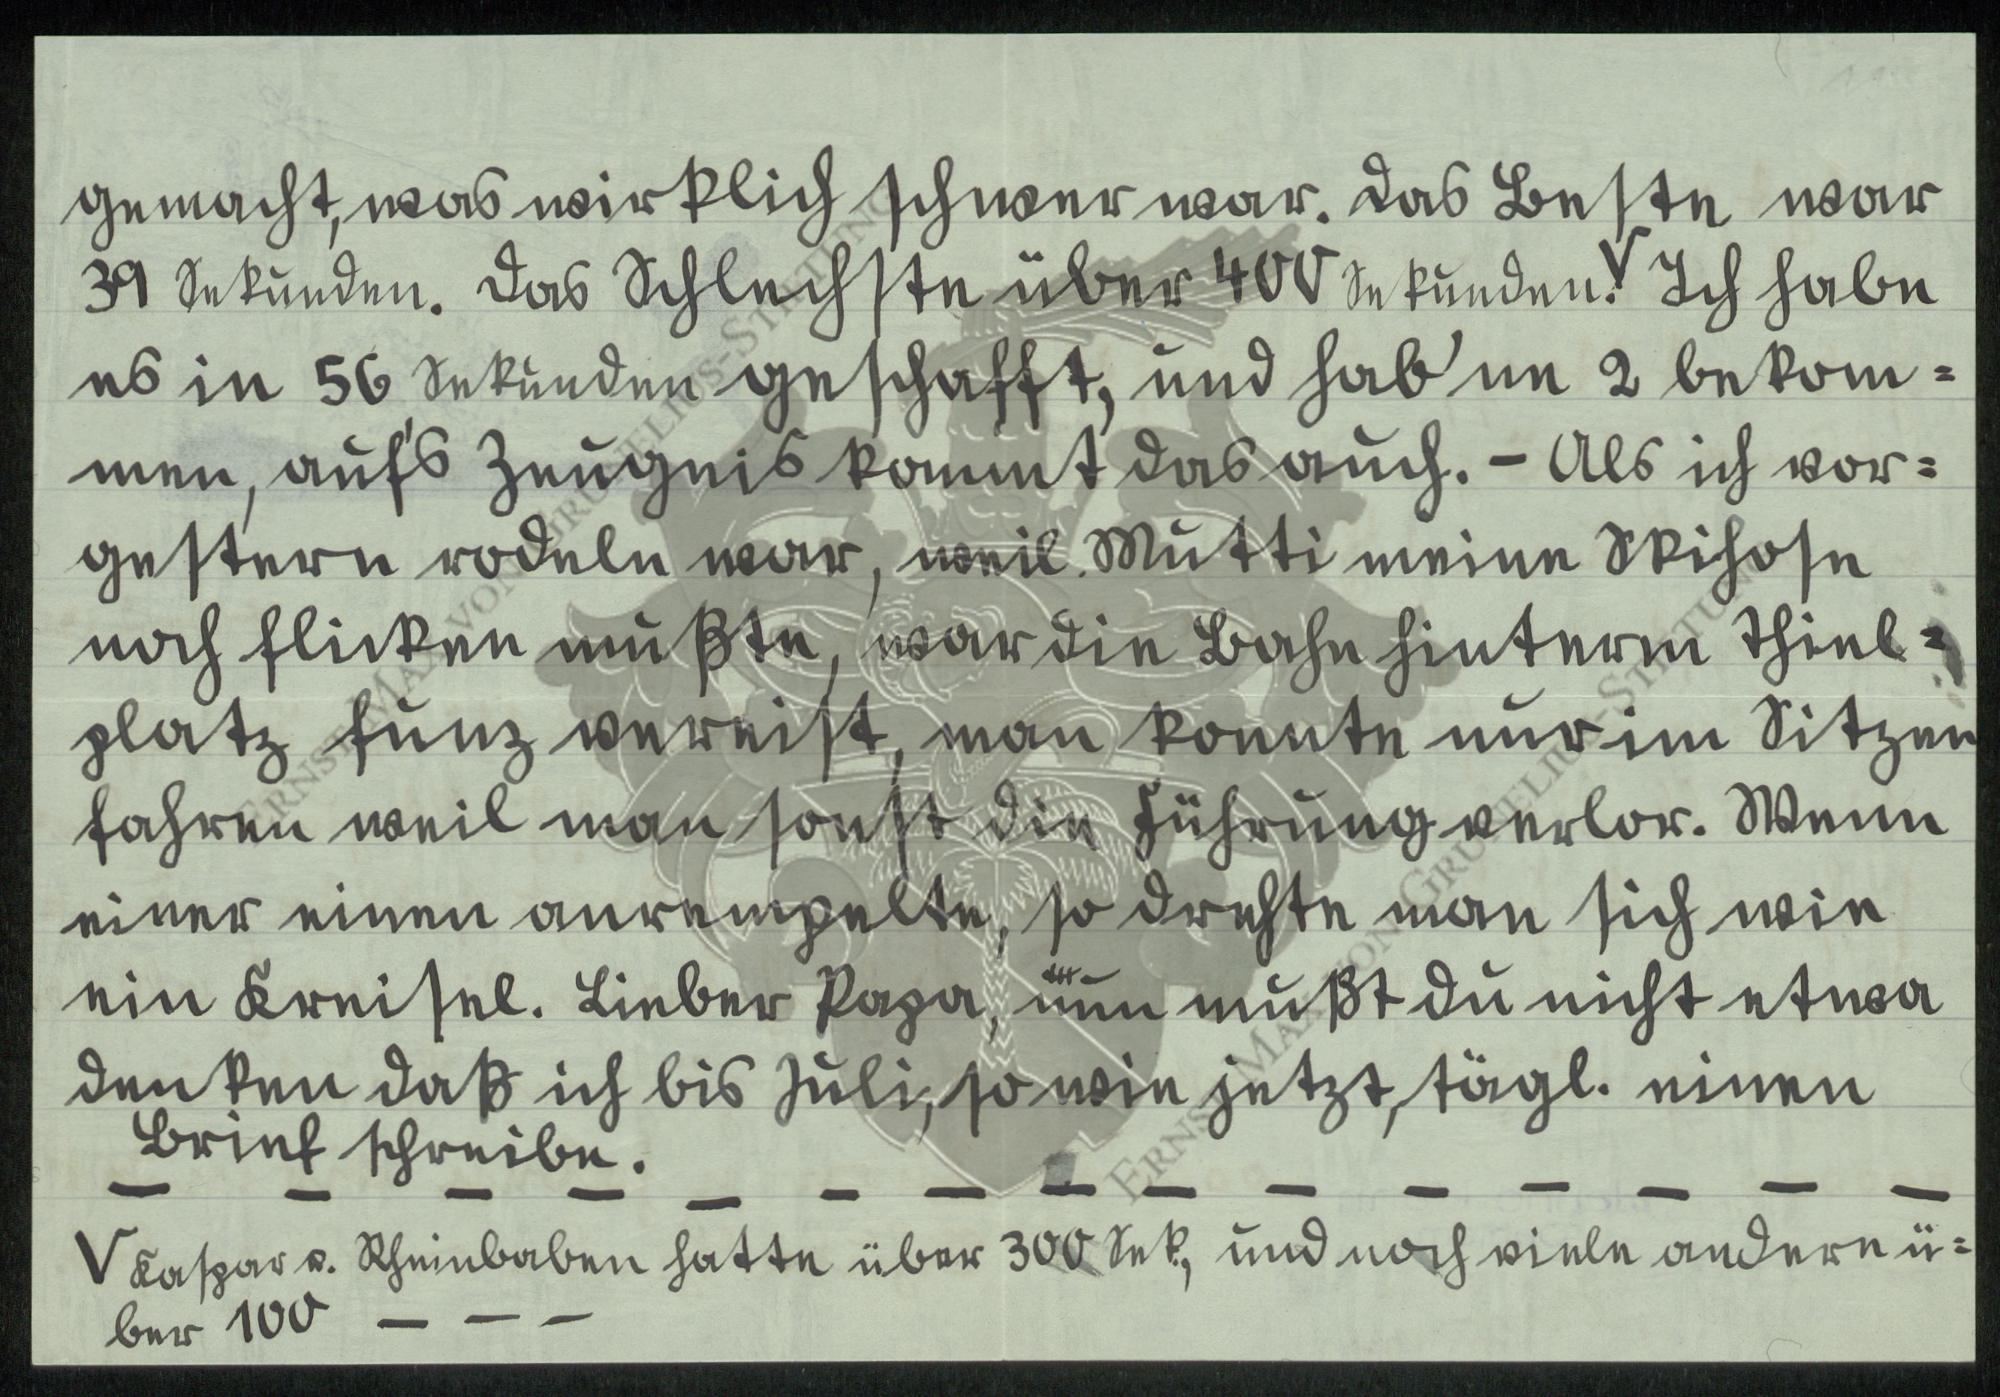 gemacht, was wirklich schwer war. Das Beste war
39 Sekunden. Das Schlechste über 400 Sekunden.V Ich habe
es in 56 Sekunden geschafft, und hab'ne 2 bekom=
men, auf's Zeugnis kommt das auch. – Als ich vor=
gestern rodeln war, weil Mutti meine Skihose
noch flicken mußte, war die Bahn hinterm Thiel=
platz funz vereist, man konnte nur im Sitzen
fahren weil man sonst die Führung verlor. Wenn
einer einen anrempelte, so drehte man sich wie
ein Kreisel. Lieber Papa, nun mußt du nicht etwa
denken daß ich bis Juli, so wie jetzt, tägl. einen
Brief schreibe.
– – – – – – – – – – – – – – –
V Kaspar v. Rheinbaben hatte über 300 Sek, und noch viele andere ü=
ber 100 – – –
ERNST MAX VON GRUNELIUS-STIFTUNG
ERNST MAX VON GRUNELIUS-STIFTUNG